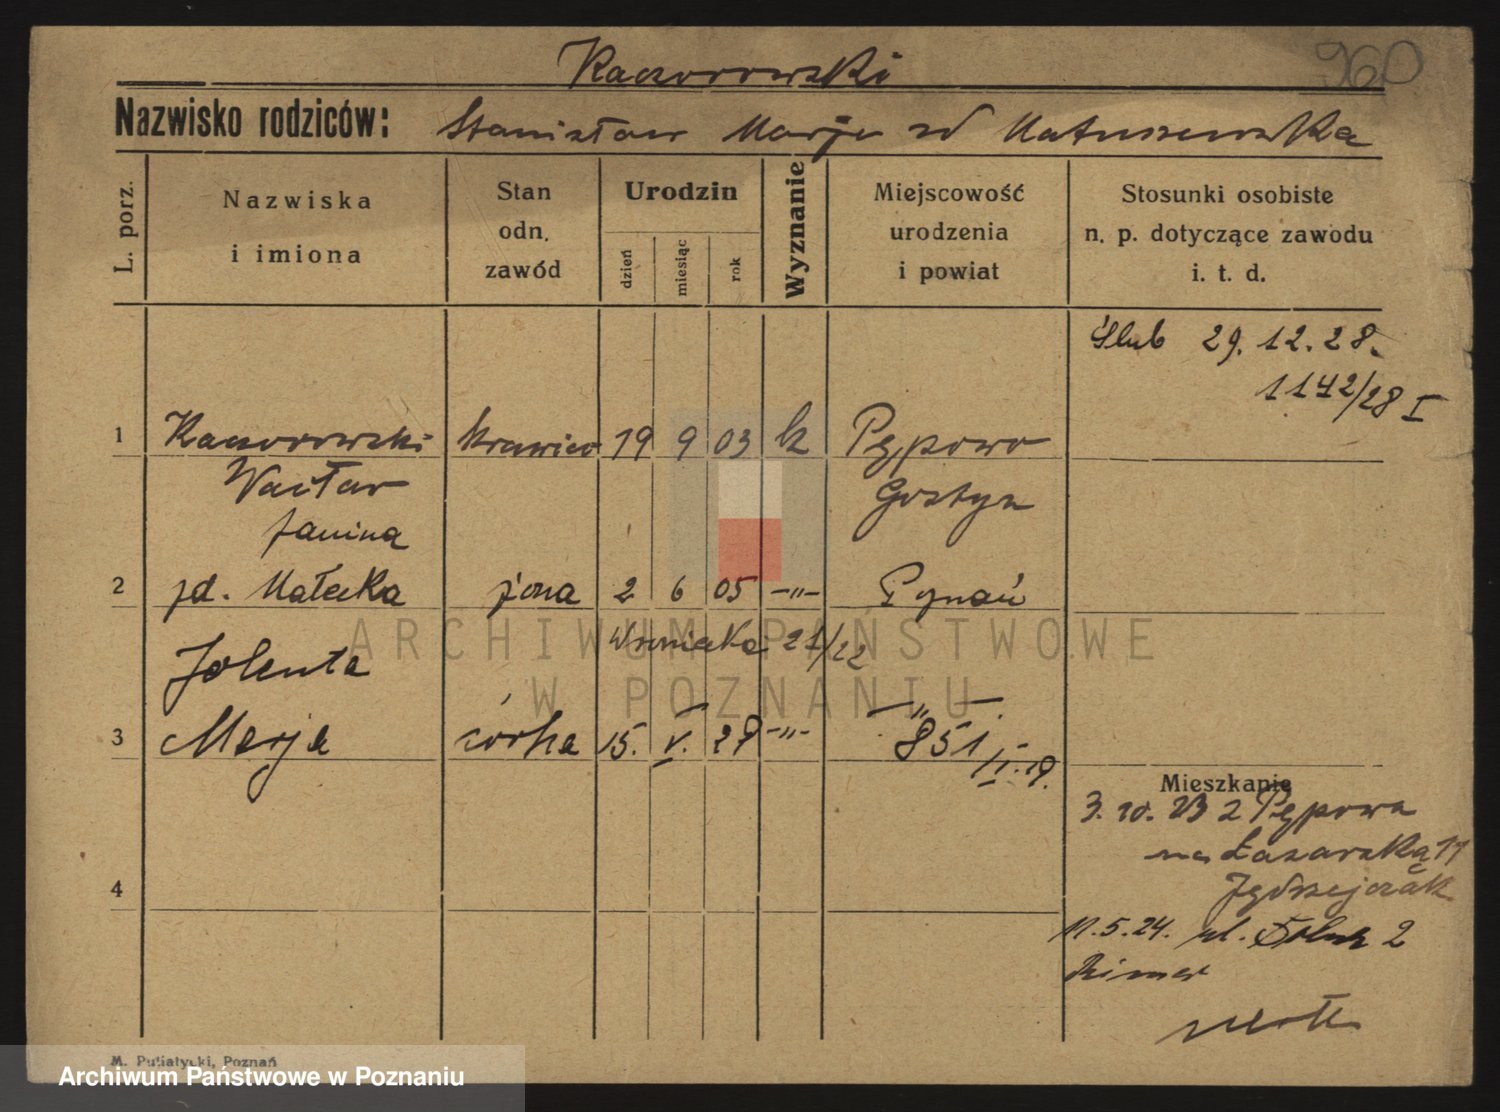 960
Kaczorowski
Nazwisko rodziców: Stanisław Marja zd Matuszewska
L. porz.
Nazwiska
i imiona
Stan
odn.
zawód
Urodzin
dzień
miesiąc
rok
Wyznanie
Miejscowość
urodzenia
i powiat
Stosunki osobiste
n. p. dotyczące zawodu
i. t. d.
Ślub 29. 12. 28.
1142/28 I
1 Kaczorowski krawiec 19 9 03 k Pępowo
Wacław Gostyn
Janina
2 zd. Małecka żona 2 6 05 -"- Poznań
Wroniecka 21/22
ARCHIWUM PAŃSTWOWE
W POZNANIU
Jolenta
3 Marja córka 15. V. 29 -"- -"-
851/I. 19.
Mieszkanie
3. 10. 23 z Pępowa
na Łazarską 11
Jędrzejczak
4
11. 5. 24. ul. 2
M. Putiatycki, Poznań
Archiwum Państwowe w Poznaniu